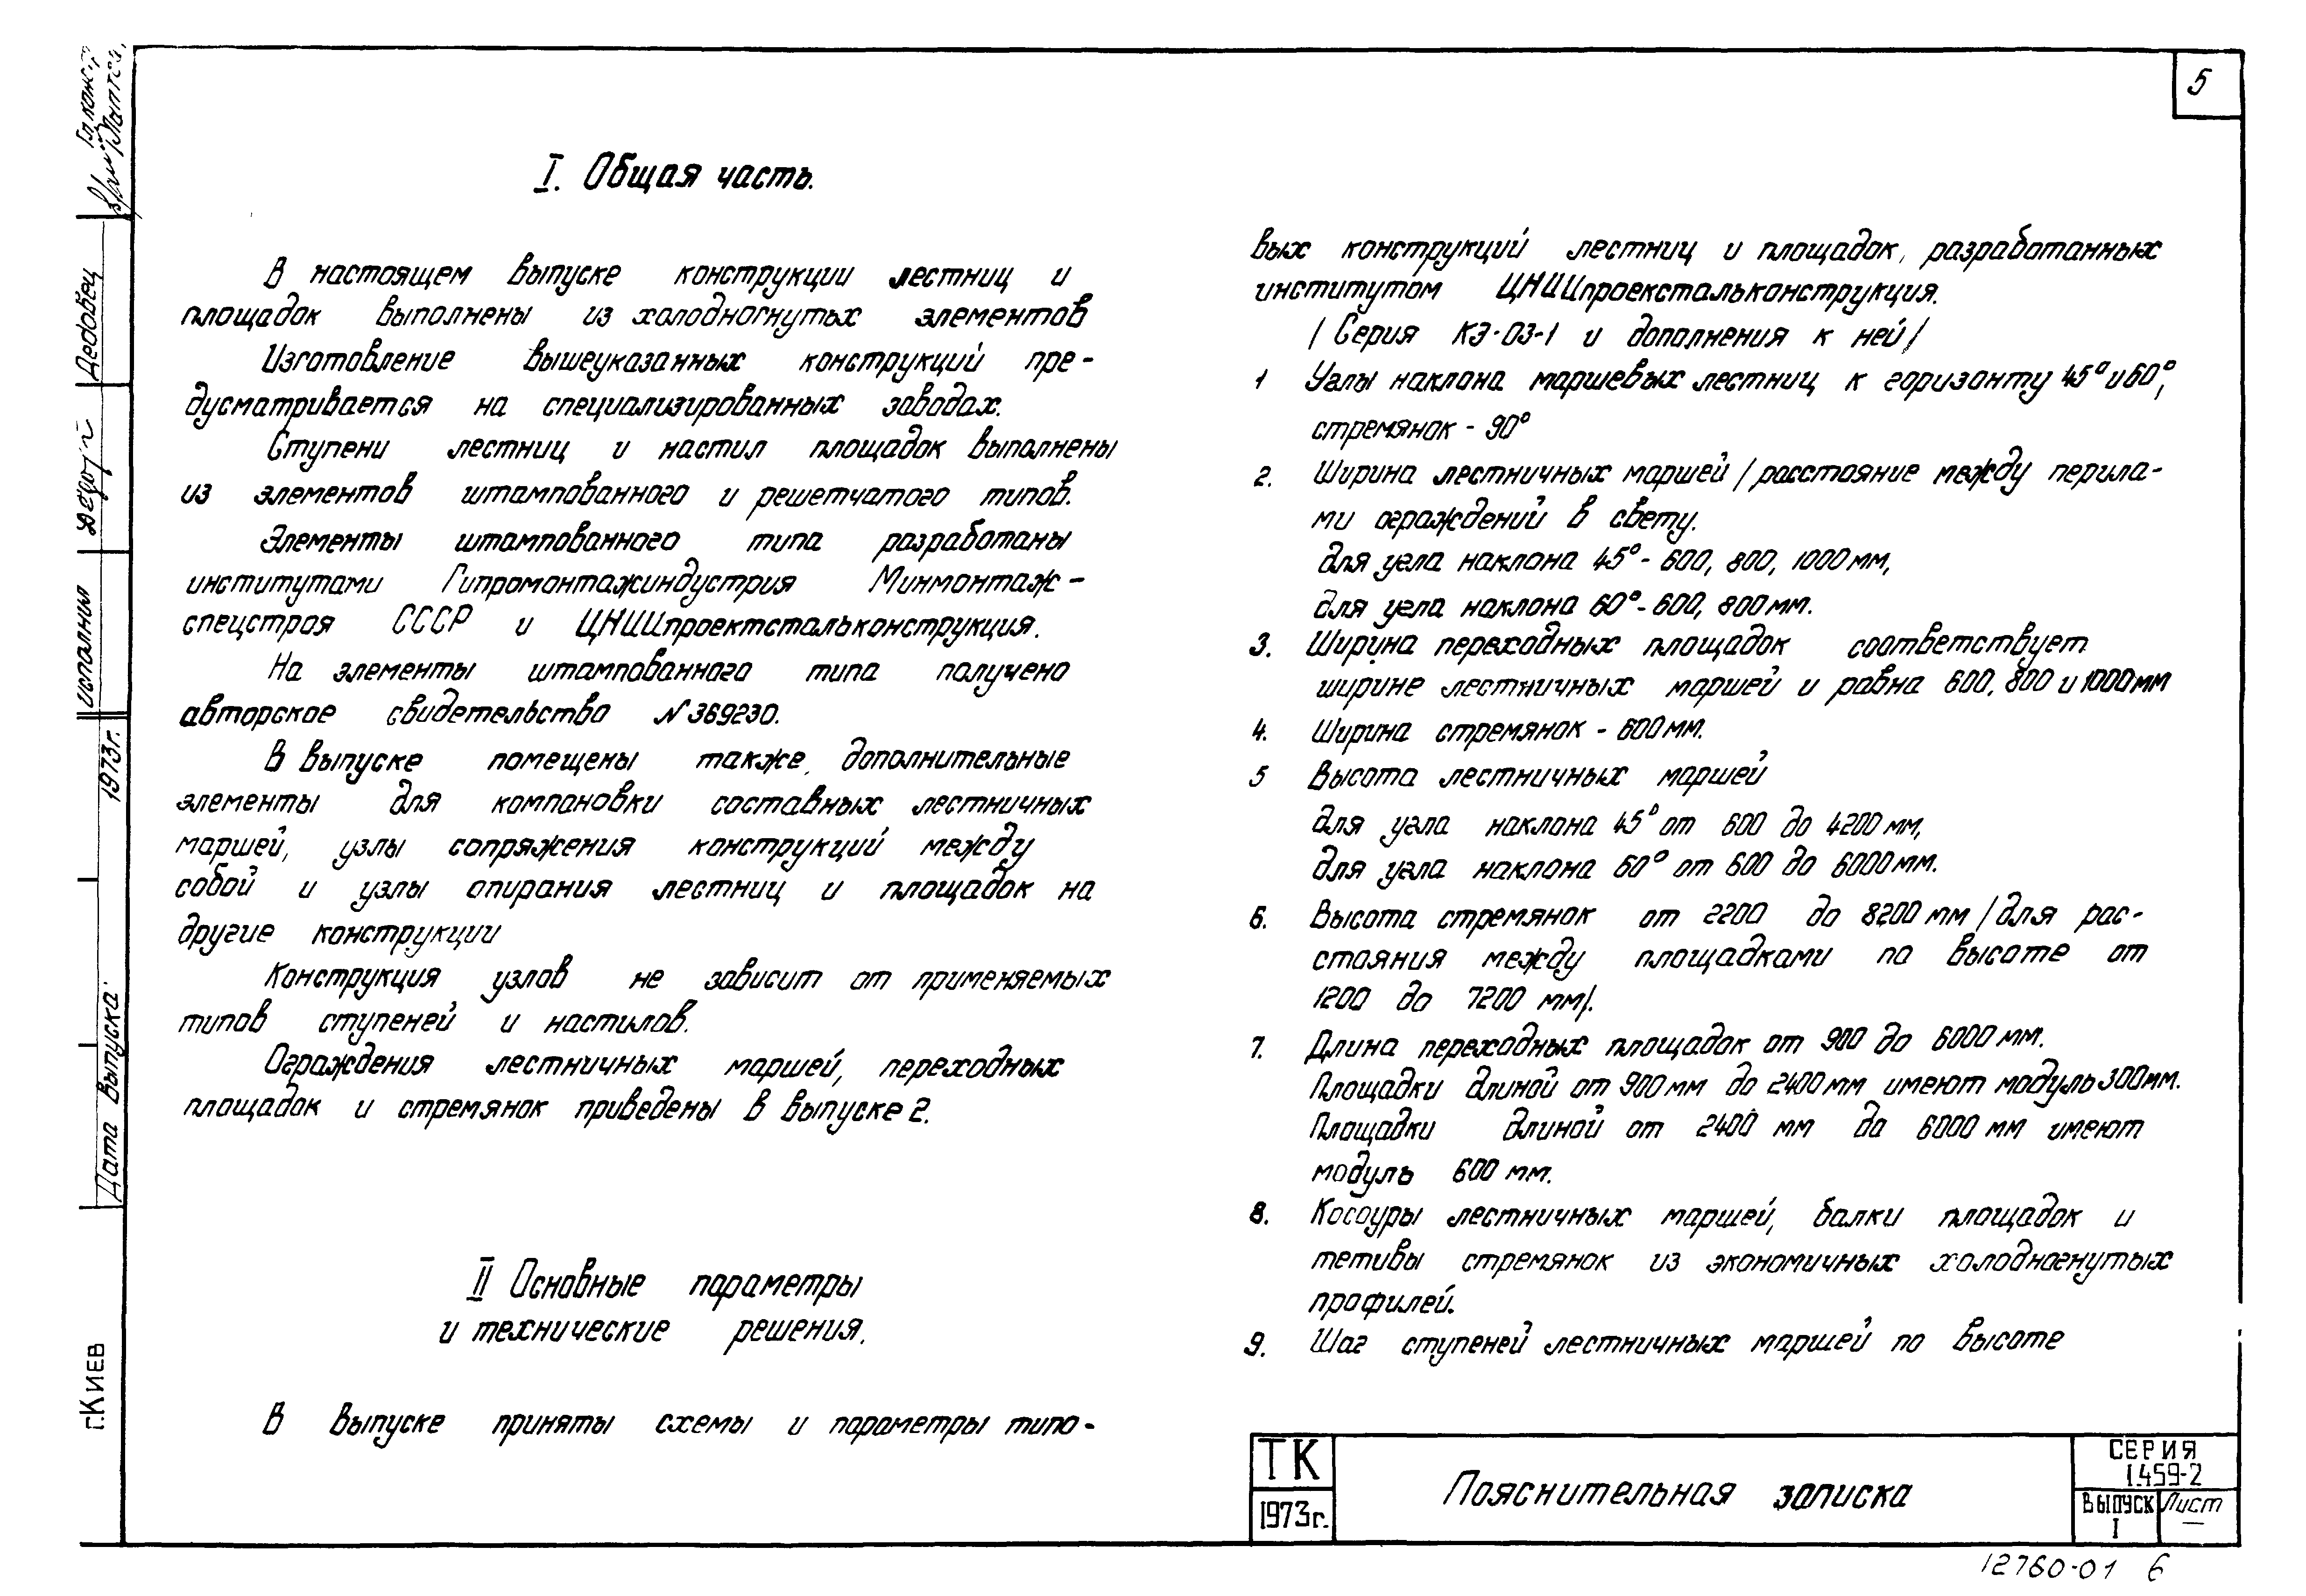 5
I. Общая часть.
В настоящем выпуске конструкции лестниц и
площадок выполнены из холодногнутых элементов
Изготовление вышеуказанных конструкций пре-
дусматривается на специализированных заводах.
Ступени лестниц и настил площадок выполнены
из элементов штампованного и решетчатого типов.
Элементы штампованного типа разработаны
институтами Гипромонтажиндустрия Минмонтаж-
спецстроя СССР и ЦНИИпроектстальконструкция.
На элементы штампованного типа получено
авторское свидетельство №369230.
В выпуске помещены также дополнительные
элементы для компановки составных лестничных
маршей, узлы сопряжения конструкций между
собой и узлы опирания лестниц и площадок на
другие конструкции
Конструкция узлов не зависит от применяемых
типов ступеней и настилов.
Ограждения лестничных маршей, переходных
площадок и стремянок приведены в выпуске 2.
II Основные параметры
и технические решения.
В выпуске приняты схемы и параметры типо-
вых конструкций лестниц и площадок, разработанных
институтом ЦНИИпроекстальконструкция.
/Серия КЭ-03-1 и дополнения к ней/
1 Углы наклона маршевых лестниц к горизонту 45° и 60°,
стремянок - 90°
2. Ширина лестничных маршей /расстояние между перила-
ми ограждений в свету.
для угла наклона 45° - 600, 800, 1000мм,
для угла наклона 60° - 600, 800мм.
3. Ширина переходных площадок соответствует
ширине лестничных маршей и равна 600, 800 и 1000мм
4. Ширина стремянок - 600мм.
5 Высота лестничных маршей
для угла наклона 45° от 600 до 4200мм,
для угла наклона 60° от 600 до 6000мм.
6. Высота стремянок от 2200 до 8200мм /для рас-
стояния между площадками по высоте от
1200 до 7200 мм/.
7. Длина переходных площадок от 900 до 6000мм.
Площадки длиной от 900мм до 2400мм имеют модуль 300мм.
Площадки длиной от 2400 мм до 6000 мм имеют
модуль 600 мм.
8. Косоуры лестничных маршей, балки площадок и
тетивы стремянок из экономичных холодногнутых
профилей.
9. Шаг ступеней лестничных маршей по высоте
ТК
1973г.
Пояснительная записка
СЕРИЯ
1.459-2
ВЫПУСК Лист
I —
12760-01 6
Гл.конст
Дедовец
исполнил
Дата выпуска 1973г.
г.Киев